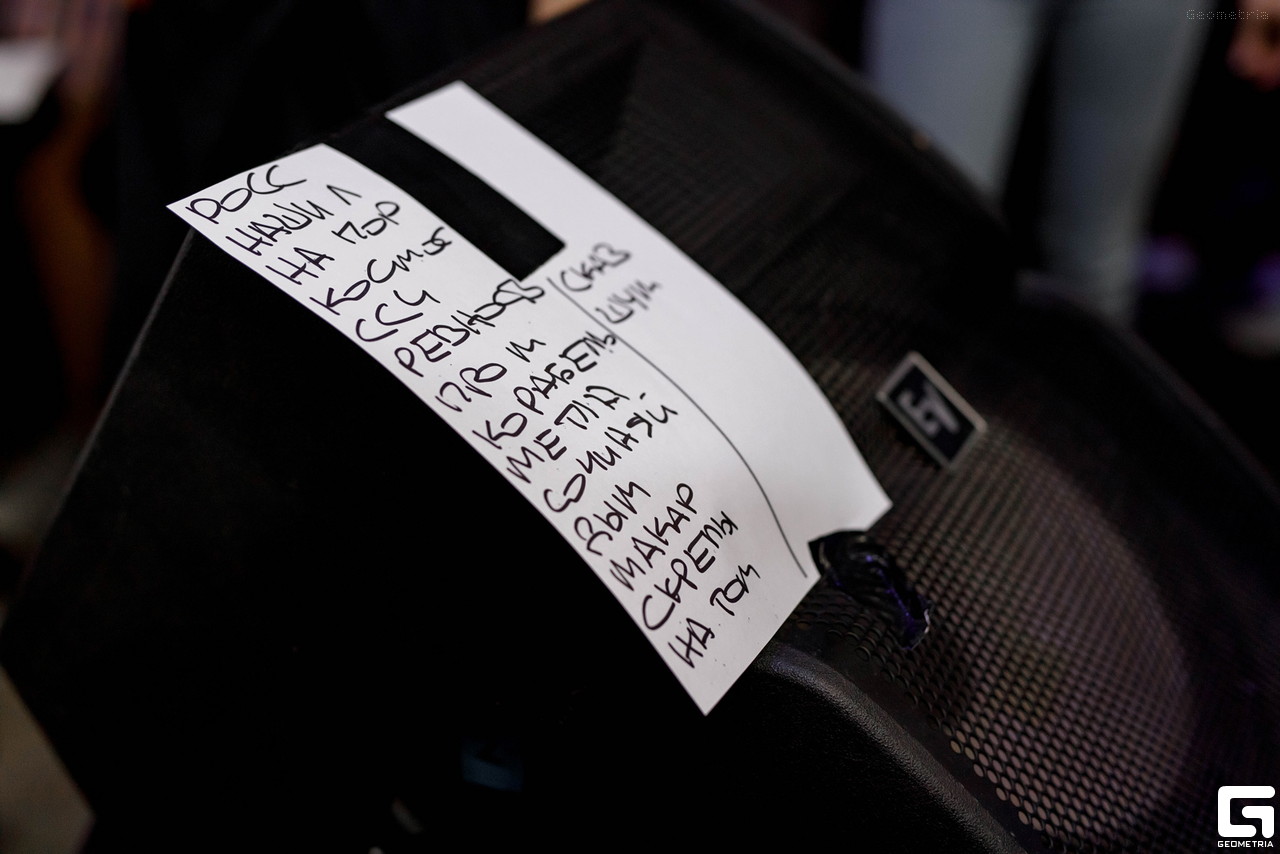 РОСС
НАШИ Л
НА ПОР
КОСМОС
ССЧ
РЕВНОСТЬ
ПРО М
КОРАБЕЛЬ
МЕТЛА
СОЧИНЯЙ
ДЫМ
МАКАР
СКРЕПЫ
НА ТОМ
СКАЗ
ШУМ
Geometria
GEOMETRIA